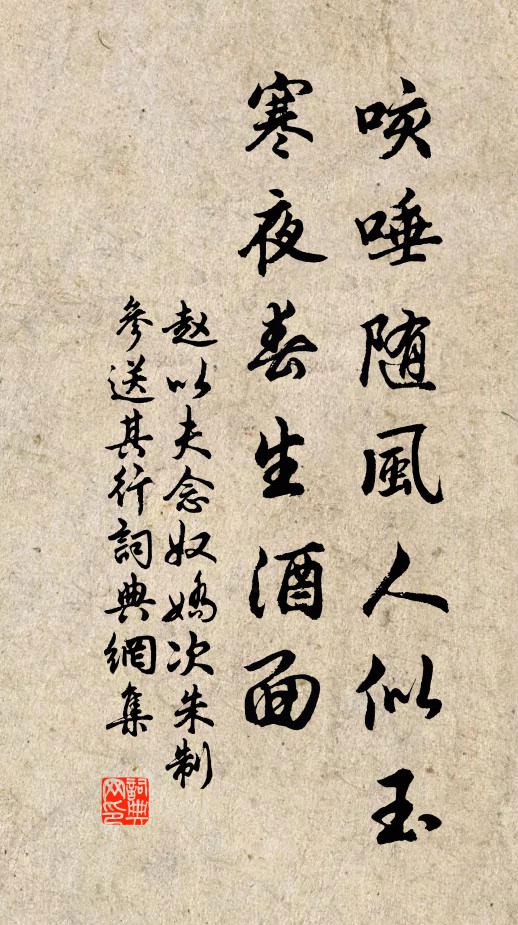 咳唾随風人似玉
寒夜春生酒面
赵以夫念奴嬌次朱制
參送其行詞典網集
詞典网印